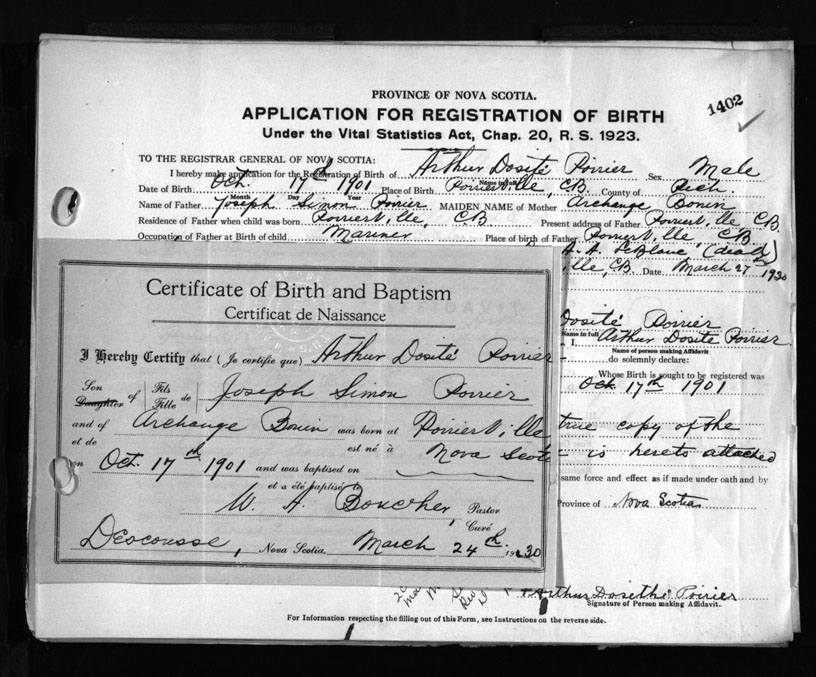 PROVINCE OF NOVA SCOTIA.
1402
APPLICATION FOR REGISTRATION OF BIRTH
Under the Vital Statistics Act, Chap. 20, R. S. 1923.
TO THE REGISTRAR GENERAL OF NOVA SCOTIA:
I hereby make application for the Registration of Birth of Arthur Dosité Poirier Sex Male
Date of Birth Oct. 17th 1901 Place of Birth Poirierville, C.B. County of Rich.
Month Day Year
Name of Father Joseph Simon Poirier MAIDEN NAME of Mother Archange Bonin
Residence of Father when child was born Poirierville, C.B. Present address of Father Poirierville C.B.
Occupation of Father at Birth of child Mariner Place of birth of Father Poirierville, C.B.
A. LeBlanc (dead)
ille, C.B. Date March 27 1930
Certificate of Birth and Baptism
Certificat de Naissance
I Hereby Certify that (Je certifie que) Arthur Dosité Poirier
Son Daughter of Fils Fille de Joseph Simon Poirier
and of Archange Bonin was born at Poirierville,
et de est né à Nova Scotia
on Oct. 17th 1901 and was baptised on
et a été baptisé le
W. A. Boucher, Pastor
Curé
Descousse, Nova Scotia, March 24th. 1930
Dosité Poirier
Name in full Arthur Dosite Poirier
Name of person making Affidavit
do solemnly declare:
Whose Birth is sought to be registered was
Oct 17th 1901
true copy of the
is hereto attached
same force and effect as if made under oath and by
Province of Nova Scotia
Arthur Doseth Poirier
Signature of Person making Affidavit.
For Information respecting the filling out of this Form, see Instructions on the reverse side.